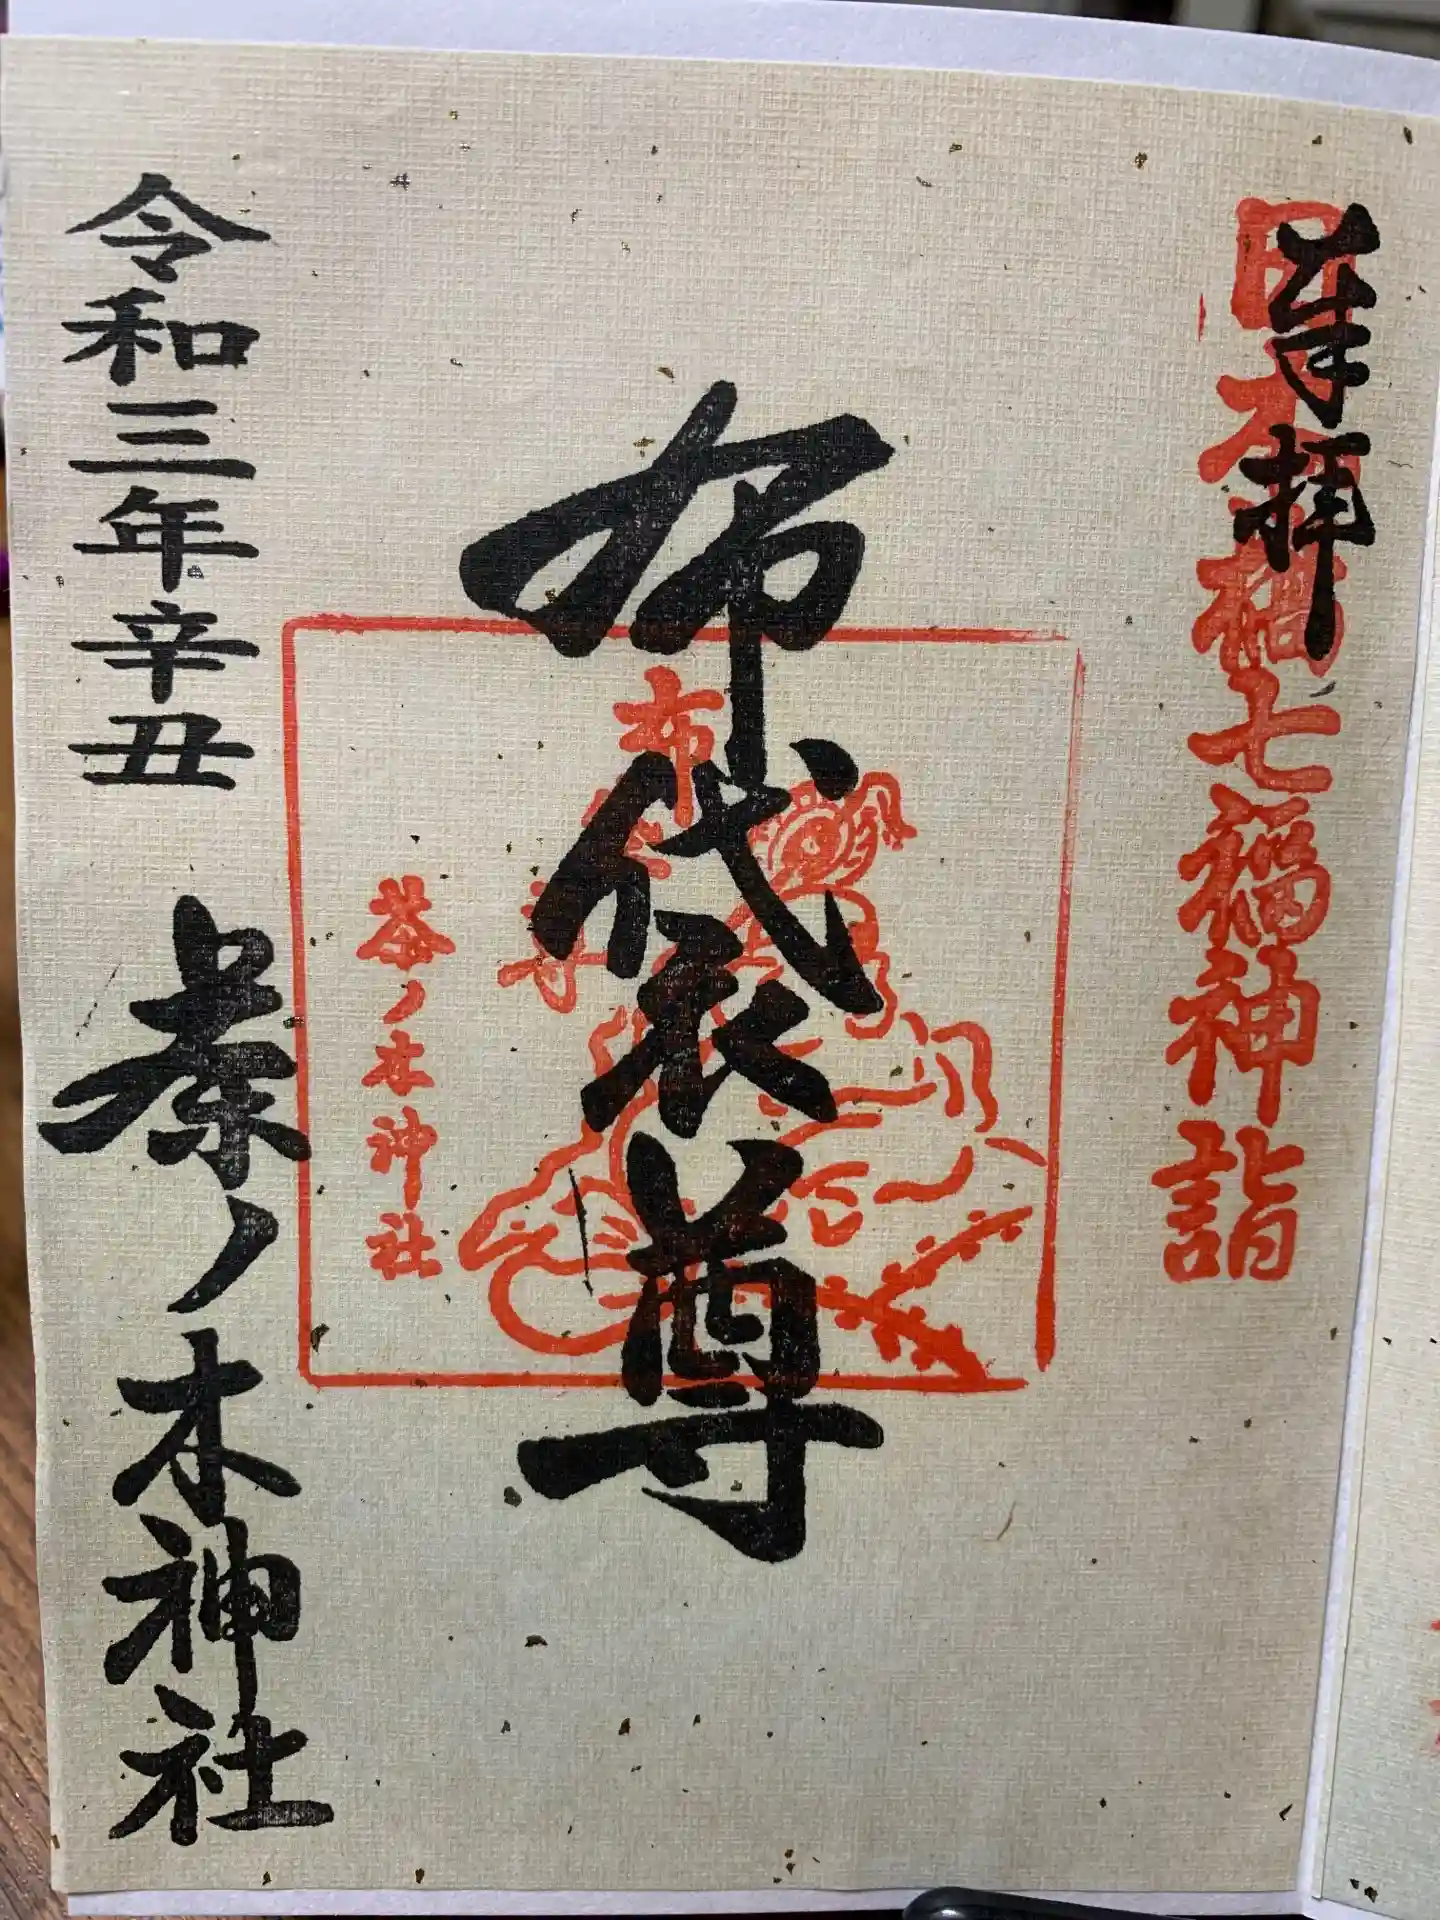 奉拝
日本橋七福神詣
布袋尊
布袋尊
茶ノ木神社
令和三年辛丑 茶ノ木神社